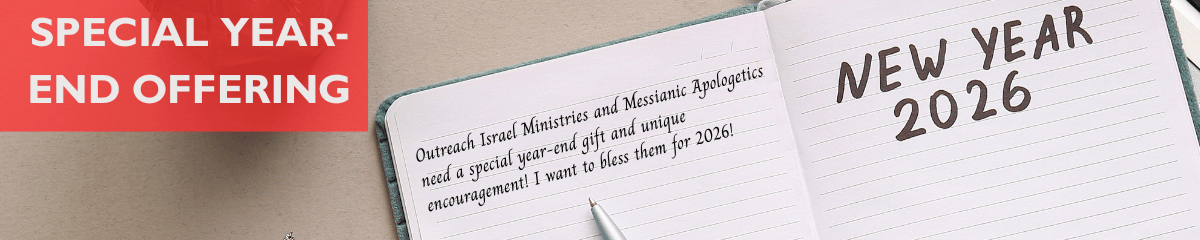 SPECIAL YEAR-
END OFFERING
Outreach Israel Ministries and Messianic Apologetics
need a special year-end gift and unique
encouragement! I want to bless them for 2026!
NEW YEAR
2026